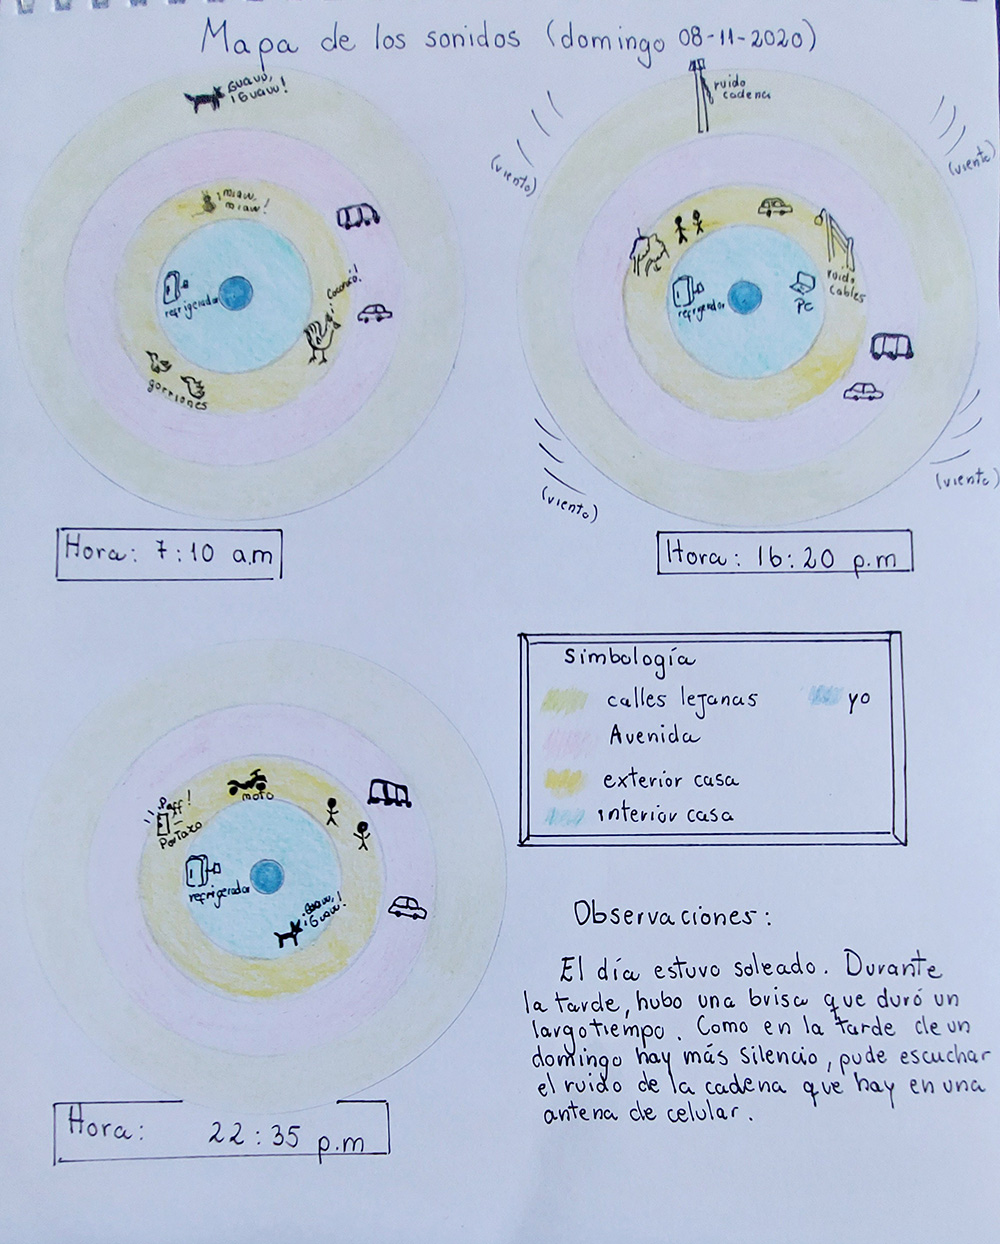 Mapa de los sonidos (domingo 08-11-2020)
Guauu,
¡Guauu!
¡miau,
miau!
refrigerador
Cocorocó!
gorriones
Hora: 7:10 a.m
ruido
cadena
(viento)
(viento)
ruido
cables
refrigerador
PC
(viento)
(viento)
Hora: 16:20 p.m
Simbología
calles lejanas
yo
Avenida
exterior casa
interior casa
moto
Paff!
Portazo
refrigerador
¡Guau,
¡Guau!
Hora: 22:35 p.m
Observaciones:
El día estuvo soleado. Durante
la tarde, hubo una brisa que duró un
largo tiempo. Como en la tarde de un
domingo hay más silencio, pude escuchar
el ruido de la cadena que hay en una
antena de celular.